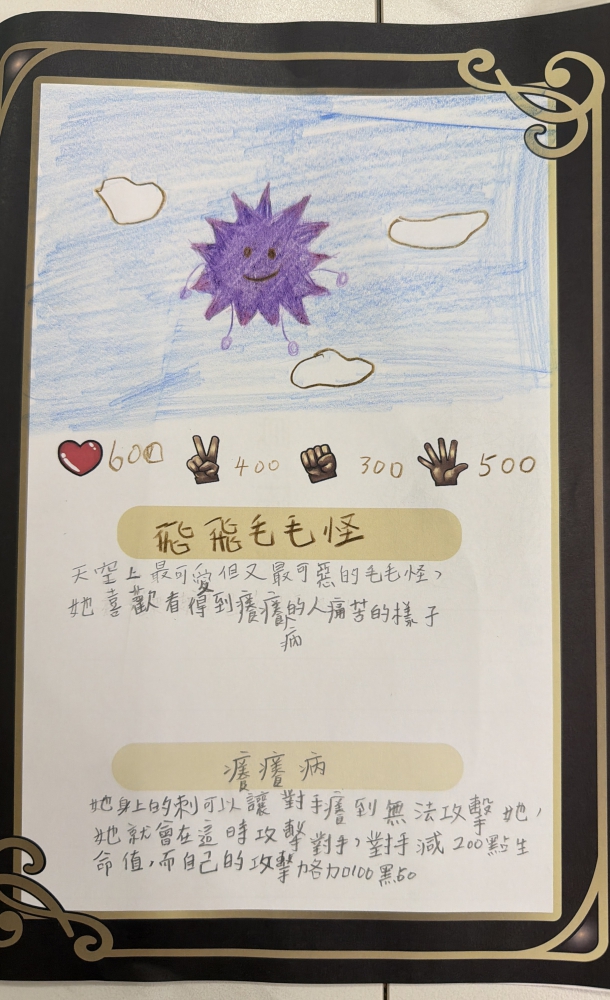 600 400 300 500
飛飛毛毛怪
天空上最可愛但又最可惡的毛毛怪,
她喜歡看得到癢癢病的人痛苦的樣子
癢癢病
她身上的刺可以讓對手癢到無法攻擊她,
她就會在這時攻擊對手,對手減200點生
命值,而自己的攻擊力各加100點。